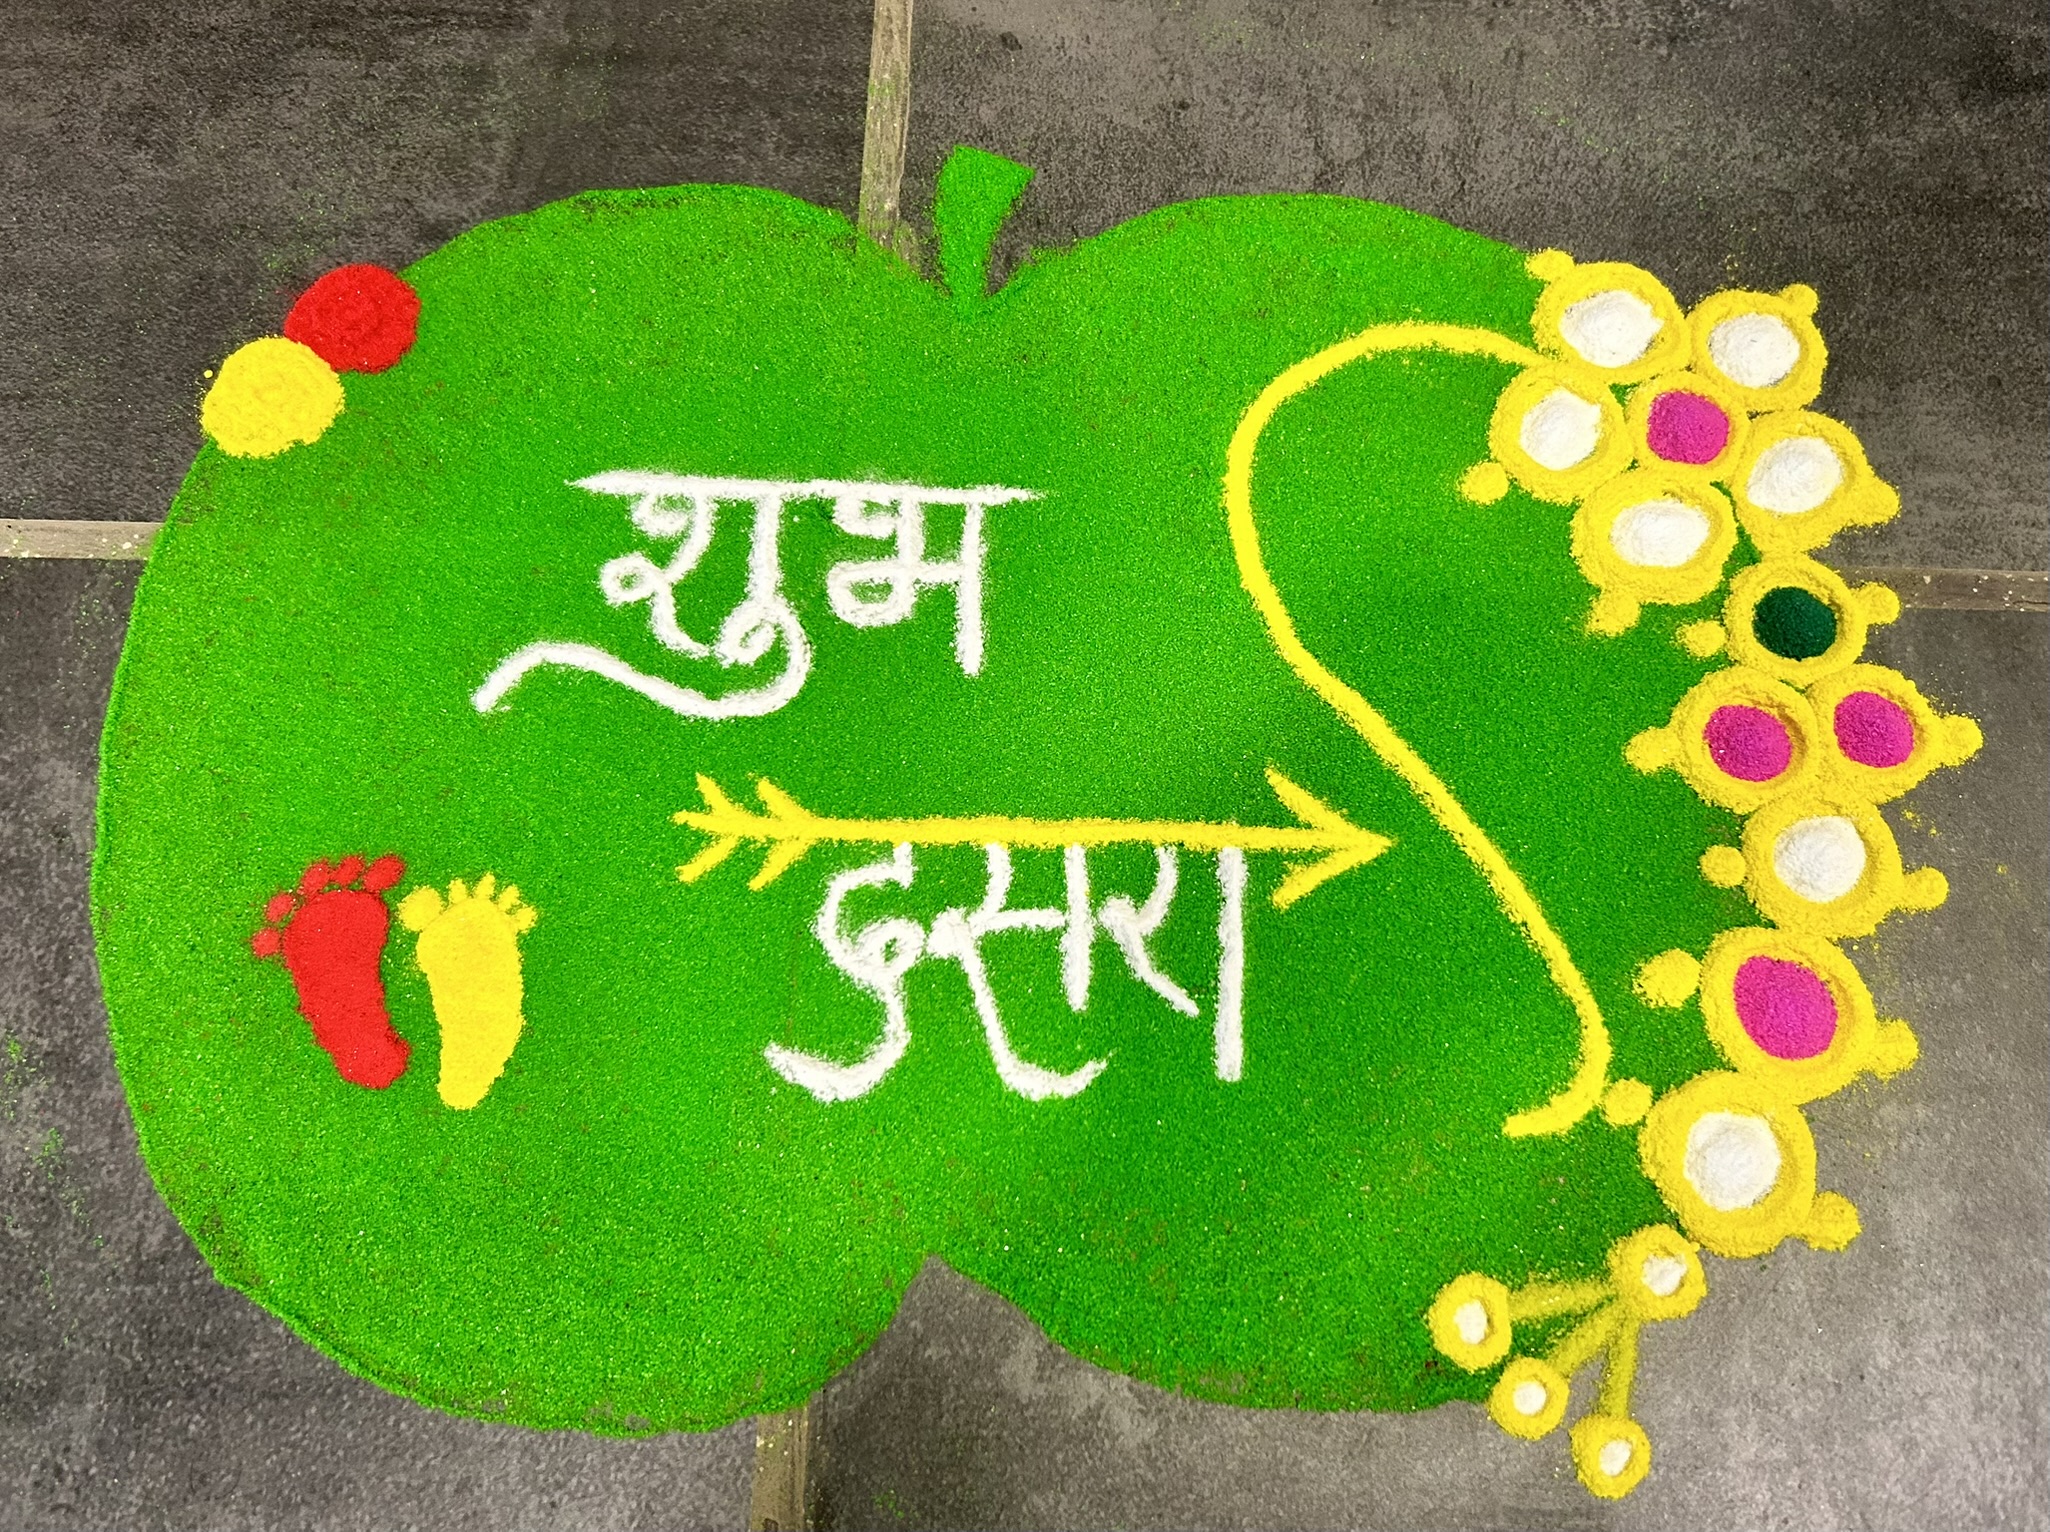 शुभ
दसरा